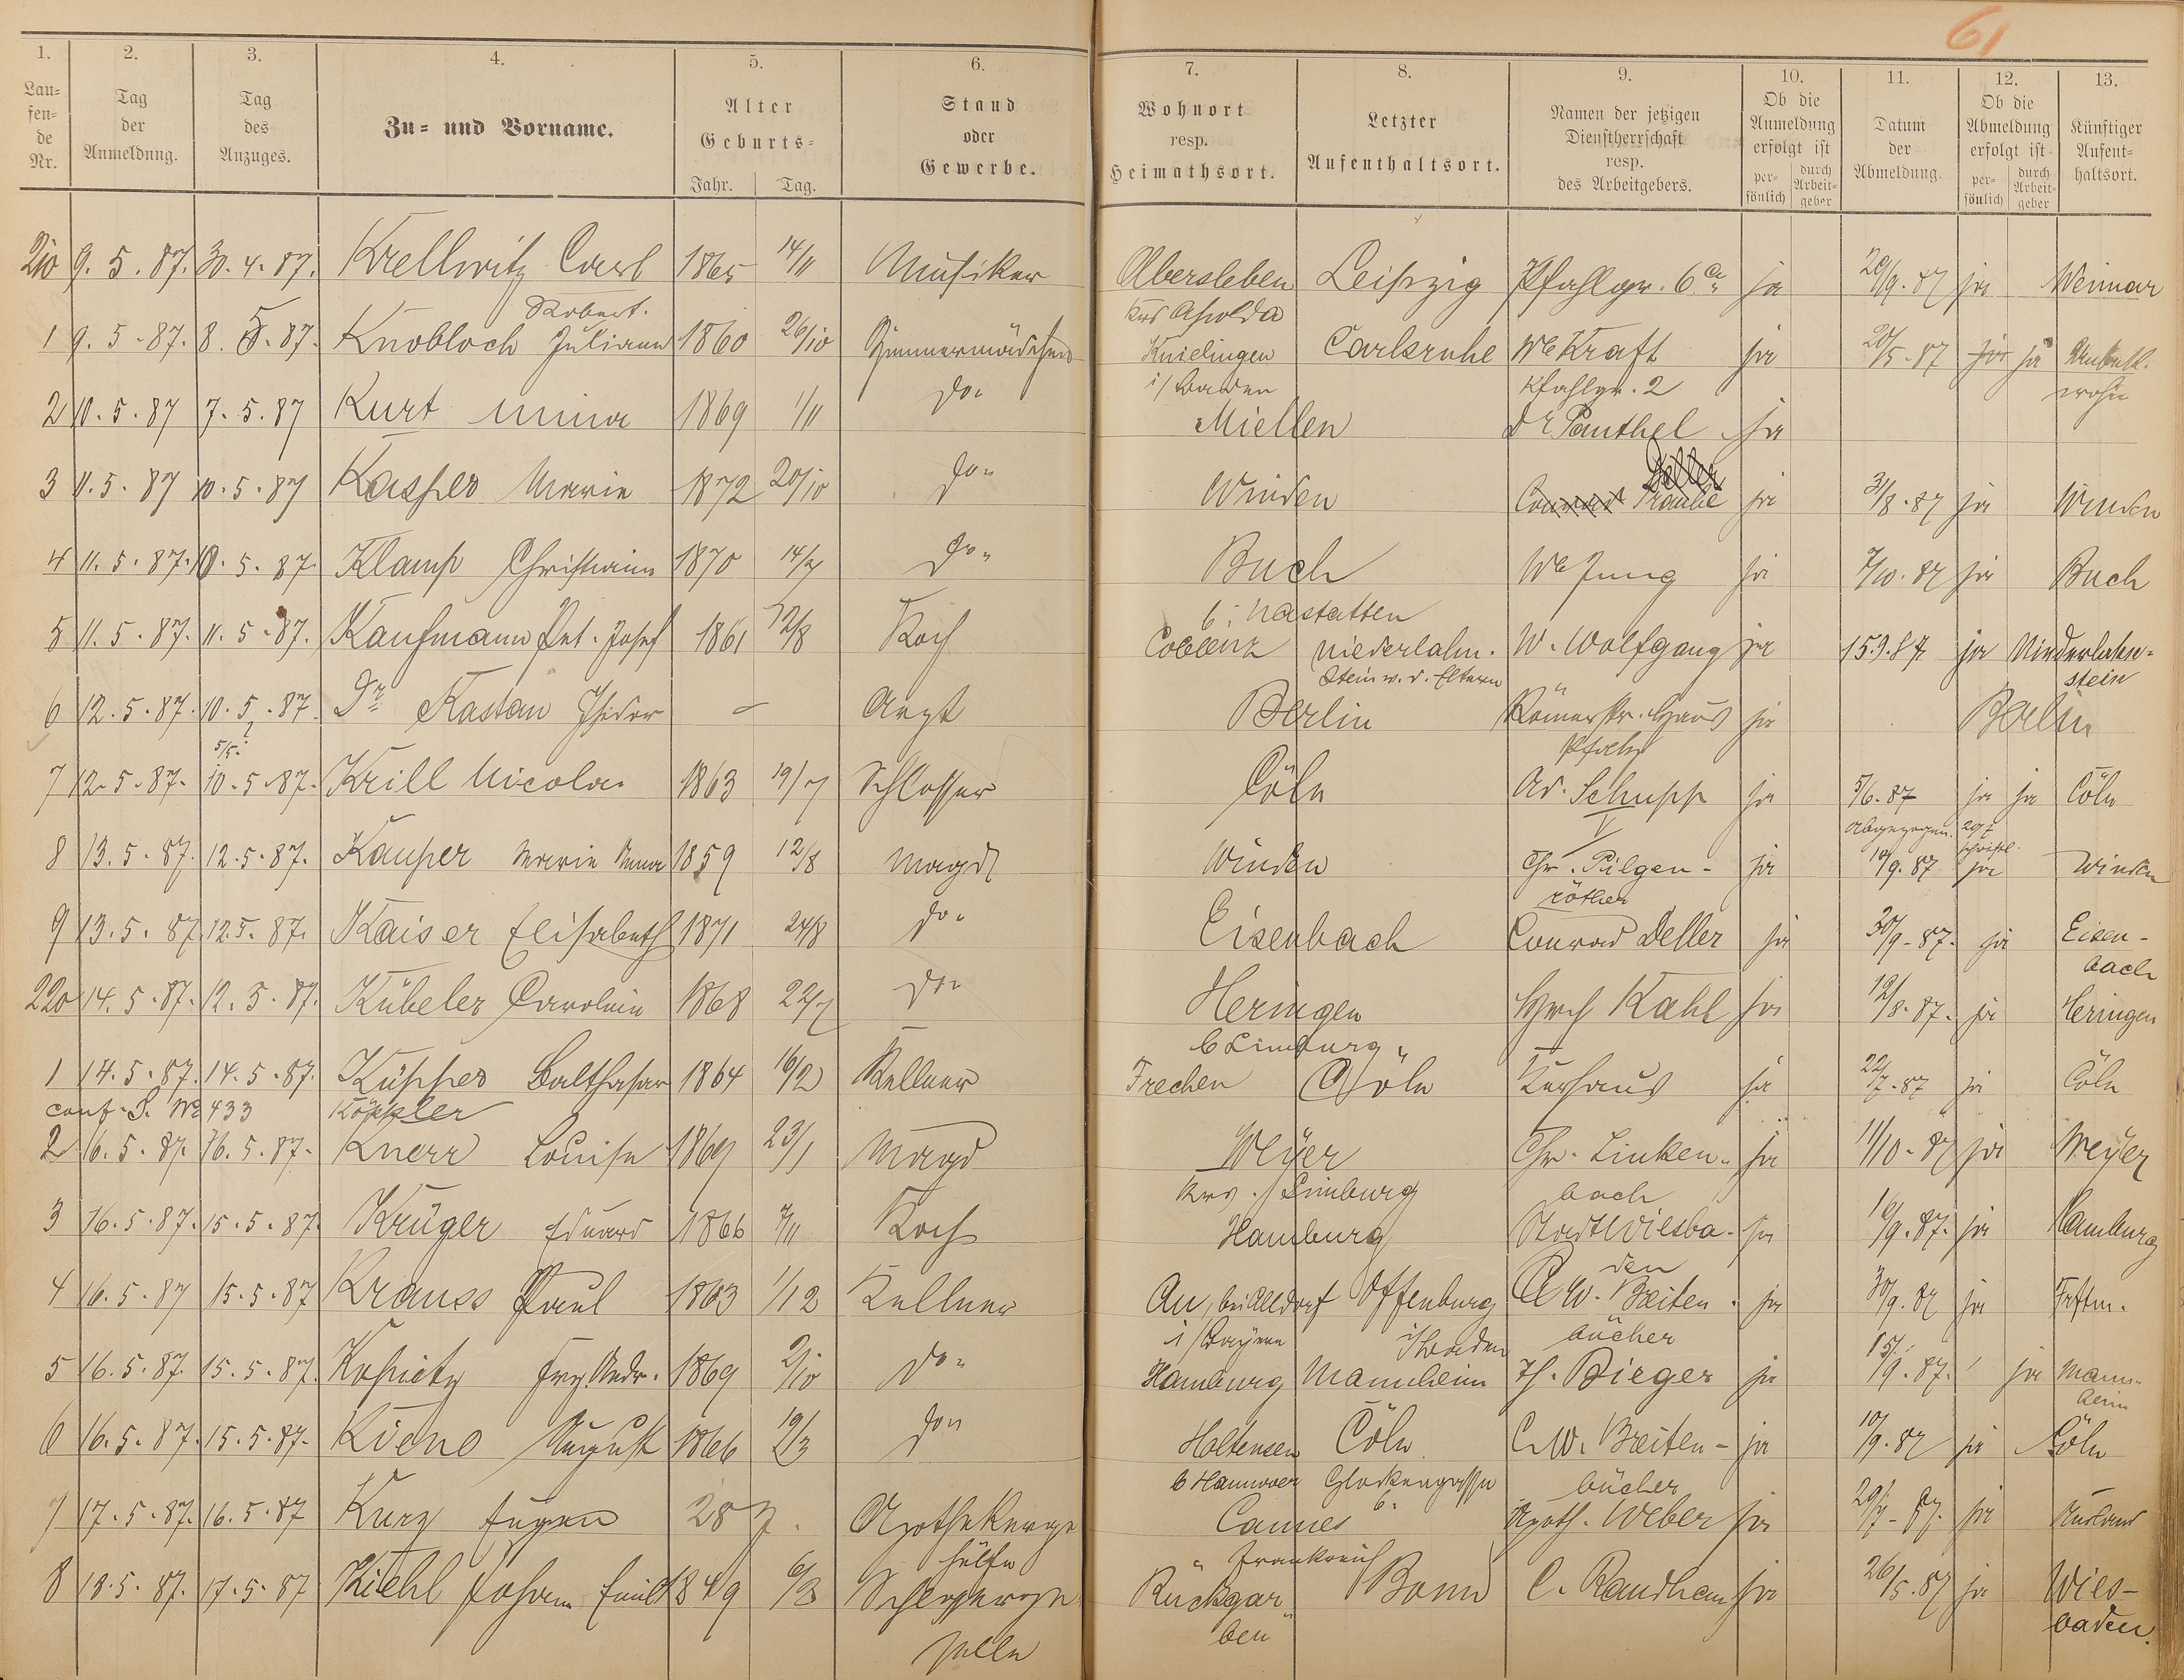 61
1. 2. 3. 4. 5. 6. 7. 8. 9. 10. 11. 12. 13.
Lau=
fen=
de
Nr.
Tag
der
Anmeldung.
Tag
des
Anzuges.
Zu= und Vorname.
Alter
Geburts=
Jahr. Tag.
Stand
oder
Gewerbe.
Wohnort
resp.
Heimathsort.
Letzter
Aufenthaltsort.
Namen der jetzigen
Dienstherrschaft
resp.
des Arbeitgebers.
Ob die
Anmeldung
erfolgt ist
per=
sönlich
durch
Arbeit=
geber
Datum
der
Abmeldung.
Ob die
Abmeldung
erfolgt ist
per=
sönlich
durch
Arbeit=
geber
Künftiger
Aufent=
haltsort.
210 9. 5. 87. 30. 4. 87. Krellwitz Carl 1865 14/11 Musiker Obersleben Leipzig Pfahlgr. 6 ja 20/9. 87 ja Weimar
Robert. Krs Apolda
1 9. 5. 87. 8. 5. 87. Knobloch Juliane 1860 26/10 Zimmermädchen Knielingen Carlsruhe We Kraft ja 20/5. 87 ja ja Unbek.
i/Baden Pfahlgr. 2 wohin
2 10. 5. 87 7. 5. 87 Kurt Mina 1869 1/11 do Miellen Dr Panthel ja
Deller
3 11. 5. 87 10. 5. 87 Kasper Marie 1872 20/10 do Winden Conrad Traube ja 31/8. 87 ja Winden
4 11. 5. 87. 10. 5. 87. Klamp Christiane 1870 14/7 do Buch We Jung ja 7/10. 87 ja Buch
b. Nastatten
5 11. 5. 87. 11. 5. 87. Kaufmann Pet. Josef 1861 12/8 Koch Coblenz Niederlahn. W. Wolfgang ja 15.9.87 ja Niederlahn=
Stein w. d. Eltern stein
6 12. 5. 87. 10. 5. 87. Dr Kastan Isidor – Arzt Berlin Römerstr. Haus ja Berlin
5/5. Pfahl
7 12. 5. 87. 10. 5. 87. Krill Nicola 1863 19/7 Schlosser Cöln Ad. Schupp ja 5/6. 87 ja ja Cöln
abgezogen. schriftl.
8 13. 5. 87. 12. 5. 87. Kauper Marie Anna 1859 12/8 Magd Winden Chr. Pilgen- ja 10/9. 87 ja Winden
röther
9 13. 5. 87. 12 5. 87. Kaiser Elisabeth 1871 24/8 do Eisenbach Conrad Deller ja 30/9. 87. ja Eisen-
bach
220 14. 5. 87. 12. 5. 87. Kübeler Carolina 1868 22/7 do Heringen Hrch Kahl ja 19/8. 87. ja Heringen
b Limburg
1 14. 5. 87. 14. 5. 87. Küpper Balthasar 1864 16/2 Kellner Frechen Cöln Kurhaus ja 22/7. 87 ja Cöln
conf. S. No 433 Köppler
2 16. 5. 87. 16. 5. 87. Knerr Louise 1869 23/1 Magd Weyer Chr. Linken- ja 11/10. 87 ja Weyer
Krs. Limburg bach
3 16. 5. 87. 15. 5. 87. Krüger Eduard 1866 7/11 Koch Hamburg Stadt Wiesba- ja 10/9. 87. ja Hamburg
den
4 16. 5. 87 15. 5. 87 Krauss Paul 1863 1/12 Kellner Au, bei Alldorf Offenburg C. W. Breiten- ja 30/9. 87 ja
i/Bayern i/Baden bücher
5 16. 5. 87. 15. 5. 87. Kopietz Frz. Andr. 1869 2/10 do Hamburg Mannheim H. Bieger ja 15/9. 87. ja Mann-
heim
6 16. 5. 87. 15. 5. 87. Kieno August 1866 19/3 do Holtensen Cöln C. W. Breiten- ja 10/9. 87 ja Cöln
b Hannover Glockengasse bücher
6.
7 17. 5. 87. 16. 5. 87 Kurz Eugen 28 J. Apothekerge Cannes Apoth. Weber ja 29/7. 87. ja Ausland
hülfe Frankreich
8 18. 5. 87. 17. 5. 87 Kiehl Johann Emil 1849 6/3 Rückgar Bonn C. Randhan ja 26/5. 87 ja Wies-
selle ben baden.